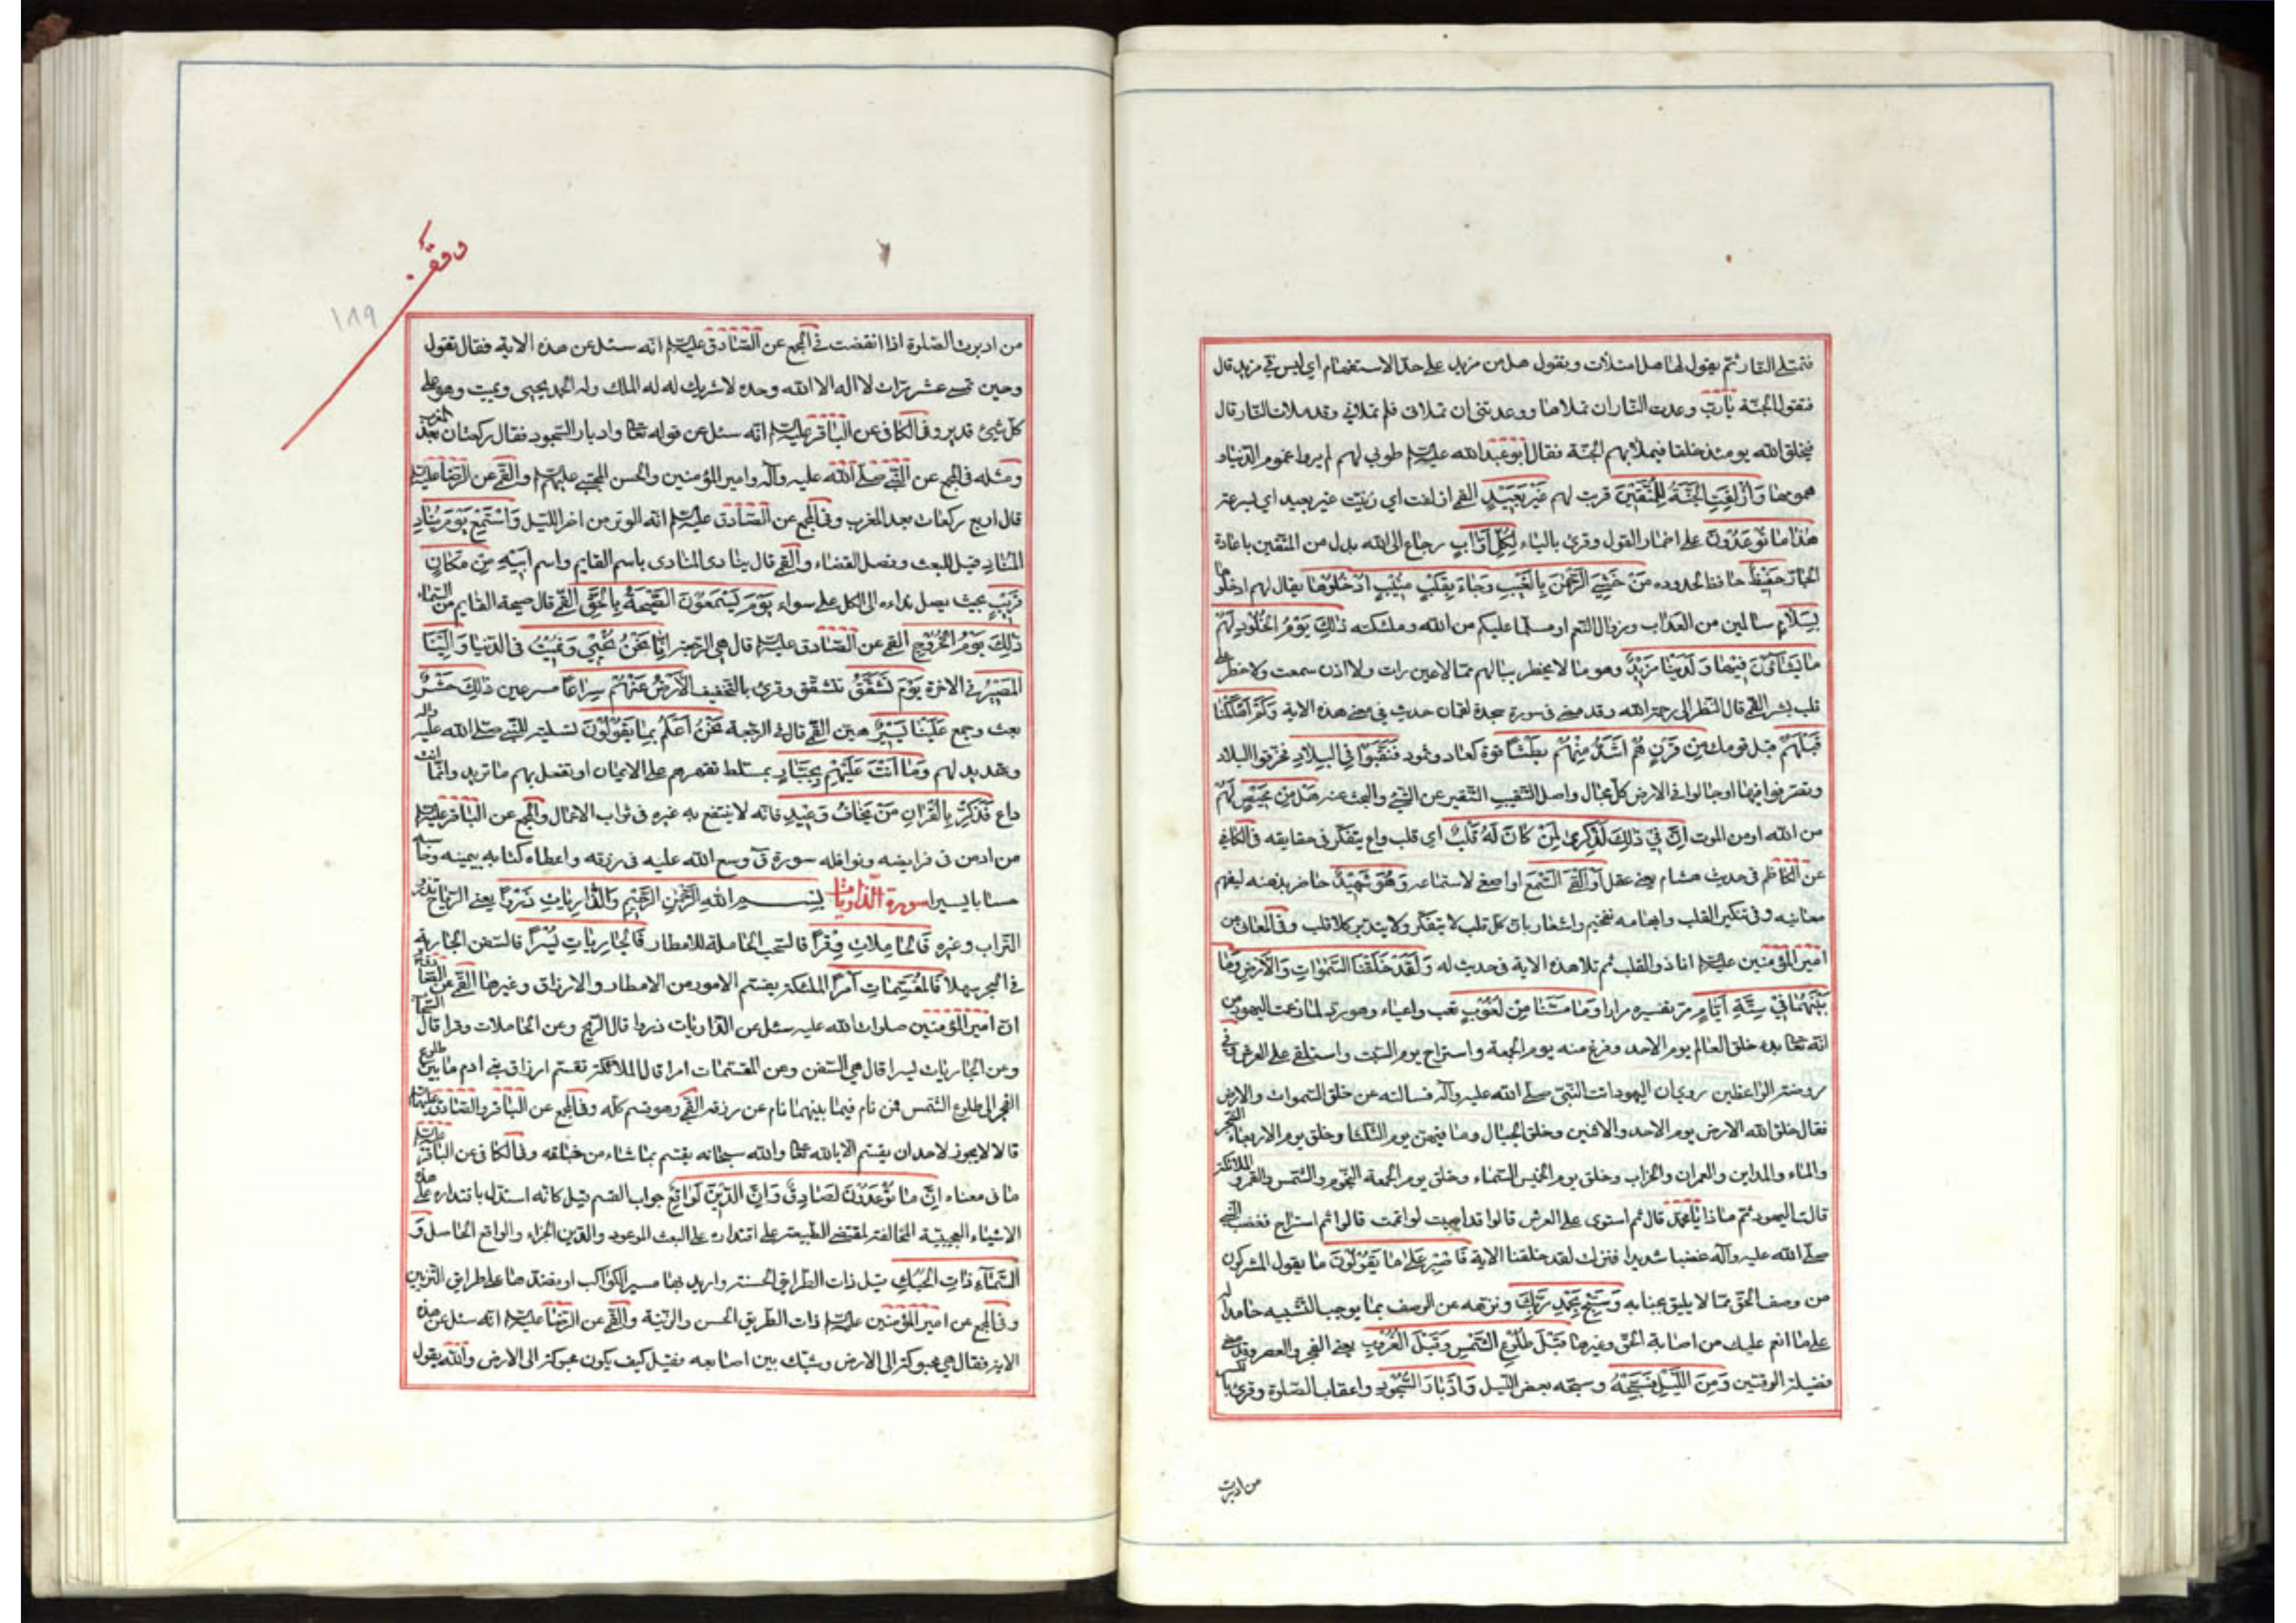 فتمتلی النار ثم یقول لها هل امتلات وتقول هل من مزید علی حد الاستفهام ای لیس فی مزید قال
فتقول الجنة یارب وعدت النار ان تملاها ووعدتنی ان تملانی فلم تملانی وقد ملات النار قال
فیخلق الله یومئذ خلقا فیملا بهم الجنة فقال ابو عبدالله علیه السلم طوبی لهم لم یروا غموم الدنیا و
همومها وَاُزْلِفَتِ الجَنَّةُ لِلْمُتَّقینَ قربت لهم غَیْرَ بَعیدٍ القمی ازلفت ای زینت غیر بعید ای بسرعة
هٰذا ما تُوعَدُونَ علی اضمار القول وقرئ بالیاء لِکُلِّ اَوّابٍ رجاع الی الله بدل من المتقین باعادة
الجار حَفیظٍ حافظ لحدوده مَنْ خَشِیَ الرَّحْمٰنَ بِالْغَیْبِ وَجاءَ بِقَلْبٍ مُنیبٍ اُدْخُلُوها یقال لهم ادخلوها
بِسَلامٍ سالمین من العذاب وزوال النعم او مسلما علیکم من الله وملئکته ذٰلِکَ یَوْمُ الْخُلُودِ لَهُمْ
ما یَشاؤُنَ فیها وَلَدَیْنا مَزیدٌ وهو ما لا یخطر ببالهم مما لا عین رات ولا اذن سمعت ولا خطر علی
قلب بشر القمی قال النظر الی رحمة الله وقد مضی فی سورة سجدة لقمان حدیث فی معنی هذه الایة وَکَمْ اَهْلَکْنا
قَبْلَهُمْ قبل قومک مِنْ قَرْنٍ هُمْ اَشَدُّ مِنْهُمْ بَطْشاً قوة کعاد وثمود فَنَقَّبُوا فِی الْبِلادِ فخرقوا البلاد
وتصرفوا فیها او جالوا فی الارض کل مجال واصل التنقیب التنقیر عن الشئ والبحث عنه هَلْ مِنْ مَحیصٍ لهم
من الله او من الموت اِنَّ فی ذٰلِکَ لَذِکْریٰ لِمَنْ کانَ لَهُ قَلْبٌ ای قلب واع یتفکر فی حقایقه فی الکافی
عن الکاظم فی حدیث هشام یعنی عقل اَوْ اَلْقَی السَّمْعَ او اصغی لاستماعه وَهُوَ شَهیدٌ حاضر بذهنه لیفهم
معانیه وفی تنکیر القلب وابهامه تفخیم واشعار بان کل قلب لا یتفکر ولا یتدبر کلا قلب وفی المعانی عن
امیر المؤمنین علیه السلم انا ذو القلب ثم تلا هذه الایة فی حدیث له وَلَقَدْ خَلَقْنَا السَّمٰواتِ وَالْاَرْضَ وَما
بَیْنَهُما فی سِتَّةِ اَیّامٍ مر تفسیره مرارا وَما مَسَّنا مِنْ لُغُوبٍ تعب واعیاء وهو رد لما زعمت الیهود من
انه تعالی بدء خلق العالم یوم الاحد وفرغ منه یوم الجمعة واستراح یوم السبت واستلقی علی العرش فی
روضة الواعظین روی ان الیهود اتت النبی صلی الله علیه وآله فسالته عن خلق السموات والارض
فقال خلق الله الارض یوم الاحد والاثنین وخلق الجبال وما فیهن یوم الثلثا وخلق یوم الاربعاء الشجر
والماء والمداین والعمران والخراب وخلق یوم الخمیس السماء وخلق یوم الجمعة النجوم والشمس والقمر والملائکة
قالت الیهود ثم ماذا یا محمد قال ثم استوی علی العرش قالوا قد اصبت لو اتممت قالوا ثم استراح فغضب النبی
صلی الله علیه وآله غضبا شدیدا فنزلت لقد خلقنا الایة فَاصْبِرْ عَلیٰ ما یَقُولُونَ ما یقول المشرکون
من وصف الحق بما لا یلیق بجنابه وَسَبِّحْ بِحَمْدِ رَبِّکَ ونزهه عن الوصف بما یوجب التشبیه حامدا له
علی ما انعم علیک من اصابة الحق وغیرها قَبْلَ طُلُوعِ الشَّمْسِ وَقَبْلَ الْغُرُوبِ یعنی الفجر والعصر وقد مضی
فضیلة الوقتین وَمِنَ اللَّیْلِ فَسَبِّحْهُ وسبحه بعض اللیل وَاَدْبارَ السُّجُودِ واعقاب الصلوة وقرئ بالکسر
من ادبرت
وقف
۱۸۹
من ادبرت الصلوة اذا انقضت فی المجمع عن الصادق علیه السلم انه سئل عن هذه الایة فقال تقول
وحین تمسی عشر مرات لا اله الا الله وحده لا شریک له له الملک وله الحمد یحیی ویمیت وهو علی
کل شئ قدیر وفی الکافی عن الباقر علیه السلم انه سئل عن قوله تعالی وادبار السجود فقال رکعتان بعد المغرب
ومثله فی المجمع عن النبی صلی الله علیه وآله وامیر المؤمنین والحسن المجتبی علیهم السلم والقمی عن الرضا علیه السلم
قال اربع رکعات بعد المغرب وفی المجمع عن الصادق علیه السلم انه الوتر من اخر اللیل وَاسْتَمِعْ یَوْمَ یُنادِ
الْمُنادِ قیل للبعث وفصل القضاء والقمی قال ینادی المنادی باسم القایم واسم ابیه مِنْ مَکانٍ
قَریبٍ بحیث یصل نداءه الی الکل علی سواء یَوْمَ یَسْمَعُونَ الصَّیْحَةَ بِالْحَقِّ القمی قال صیحة القایم من السماء
ذٰلِکَ یَوْمُ الْخُرُوجِ القمی عن الصادق علیه السلم قال هی الرجعة اِنّا نَحْنُ نُحْیی وَنُمیتُ فی الدنیا وَاِلَیْنَا
الْمَصیرُ فی الاخرة یَوْمَ تَشَقَّقُ تتشقق وقرئ بالتخفیف الْاَرْضُ عَنْهُمْ سِراعاً مسرعین ذٰلِکَ حَشْرٌ
بعث وجمع عَلَیْنا یَسیرٌ هین القمی قال فی الرجعة نَحْنُ اَعْلَمُ بِما یَقُولُونَ تسلیة للنبی صلی الله علیه وآله
وتهدید لهم وَما اَنْتَ عَلَیْهِمْ بِجَبّارٍ بمسلط تقهرهم علی الایمان او تفعل بهم ما ترید وانما انت
داع فَذَکِّرْ بِالْقُرْآنِ مَنْ یَخافُ وَعیدِ فانه لا ینتفع به غیره فی ثواب الاعمال والمجمع عن الباقر علیه السلم
من ادمن فی فرایضه ونوافله سورة ق وسع الله علیه فی رزقه واعطاه کتابه بیمینه وحاسبه
حسابا یسیرا سورة الذاریات بِسْمِ اللهِ الرَّحْمٰنِ الرَّحیمِ وَالذّارِیاتِ ذَرْواً یعنی الریاح تذرو
التراب وغیره فَالْحامِلاتِ وِقْراً فالسحب الحاملة للامطار فَالْجارِیاتِ یُسْراً فالسفن الجاریة
فی البحر سهلا فَالْمُقَسِّماتِ اَمْراً الملئکة یقسم الامور من الامطار والارزاق وغیرها القمی عن الصادق
ان امیر المؤمنین صلوات الله علیه سئل عن الذاریات ذروا قال الریح وعن الحاملات وقرا قال السحاب
وعن الجاریات یسرا قال هی السفن وعن المقسمات امرا قال الملائکة تقسم ارزاق بنی ادم ما بین طلوع
الفجر الی طلوع الشمس فمن نام فیما بینهما نام عن رزقه القمی وهو قسم کله وفی المجمع عن الباقر والصادق علیهما السلم
قالا لا یجوز لاحد ان یقسم الا بالله تعالی والله سبحانه یقسم بما شاء من خلقه وفی الکافی عن الباقر علیه السلم
ما فی معناه اِنَّ ما تُوعَدُونَ لَصادِقٌ وَاِنَّ الدّینَ لَواقِعٌ جواب القسم قیل کانه استدل باقتداره علی هذه
الاشیاء العجیبة المخالفة لمقتضی الطبیعة علی اقتداره علی البعث الموعود والدین الجزاء والواقع الحاصل وَ
السَّماءِ ذاتِ الْحُبُکِ قیل ذات الطرایق الحسنة وارید بها مسیر الکواکب او نضدها علی طرایق التزیین
وفی المجمع عن امیر المؤمنین علیه السلم ذات الطریق الحسن والزینة والقمی عن الرضا علیه السلم انه سئل عن هذه
الایة فقال هی محبوکة الی الارض وشبک بین اصابعه فقیل کیف یکون محبوکة الی الارض والله یقول